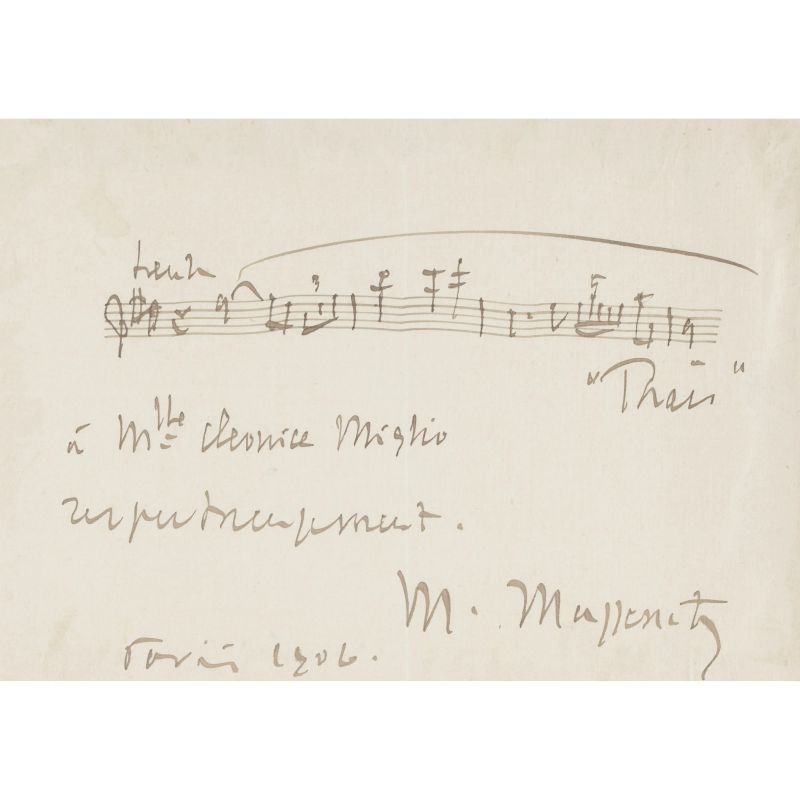 Lent
3
5
"Thaïs"
à Mlle Cleonice Miglio
respectueusement.
M. Massenet
Paris 1906.